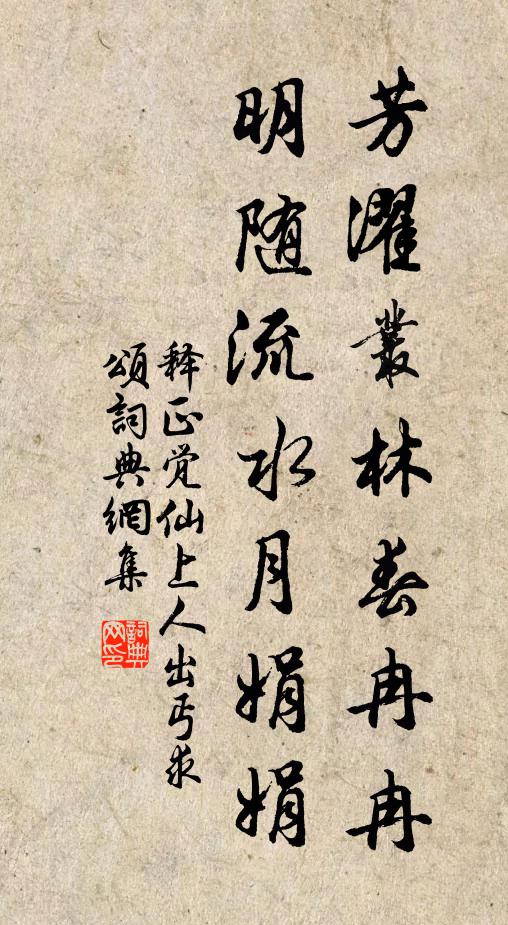 芳濯叢林春冉冉
明随流水月娟娟
释正觉仙上人出丐求
頌詞典網集
詞典网印